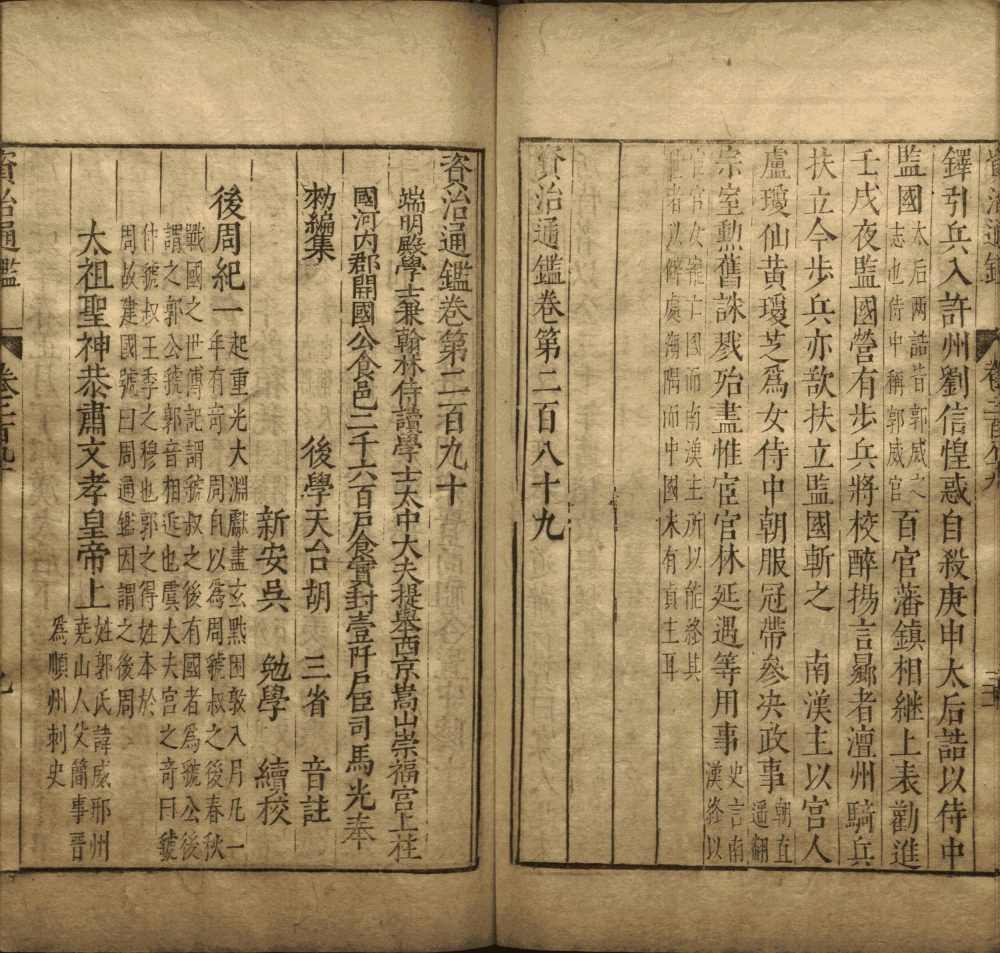 鐸引兵入許州劉信惶惑自殺庚申太后誥以侍中
監國太后两誥皆郭威之志也侍中稱郭威官百官藩鎮相繼上表勸進
壬戌夜監國營有步兵將校醉揚言曏者澶州騎兵
扶立今步兵亦欲扶立監國斬之　南漢主以宮人
盧瓊仙黃瓊芝爲女侍中朝服冠帶參决政事朝直遥翻
宗室勲舊誅戮殆盡惟宦官林延遇等用事史言南漢終以
宦官女寵亡國而南漢主所以能終其
世者以僻處海隅而中國未有真主耳
資治通鑑卷第二百八十九
資治通鑑卷第二百九十
端明殿學士兼翰林侍讀學士太中大夫提舉西京嵩山崇福宮上柱
國河內郡開國公食邑二千六百戶食實封壹阡戶臣司馬光奉
勑編集
後學天台胡　三省　音註
新安吳　勉學　續校
後周紀一起重光大淵獻盡玄黓困敦八月凡一年有奇　周自以爲周虢叔之後春秋
戰國之世傳記謂虢叔之後有國者爲虢公後
謂之郭公虢郭音相近也虞大夫宮之奇曰虢
仲虢叔王季之穆也郭之得姓本於
周故建國號曰周通鑑因謂之後周
太祖聖神恭肅文孝皇帝上姓郭氏諱威邢州堯山人父簡事晉
爲順州刺史
資治通鑑